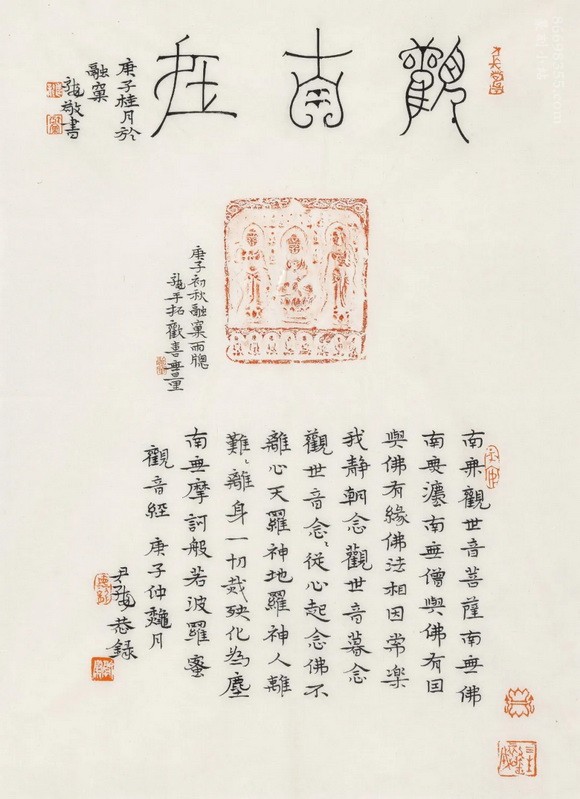 觀自在
庚子桂月於
融窠
龍敬書
庚子初秋融窠雨牕
龍手拓歡喜無量
南無觀世音菩薩南無佛
南無灋南無僧與佛有因
與佛有緣佛法相因常樂
我静朝念觀世音暮念
觀世音念〻從心起念佛不
離心天羅神地羅神人離
難〻離身一切烖殃化為塵
南無摩訶般若波羅蜜
觀音經 庚子仲龝月
恭錄